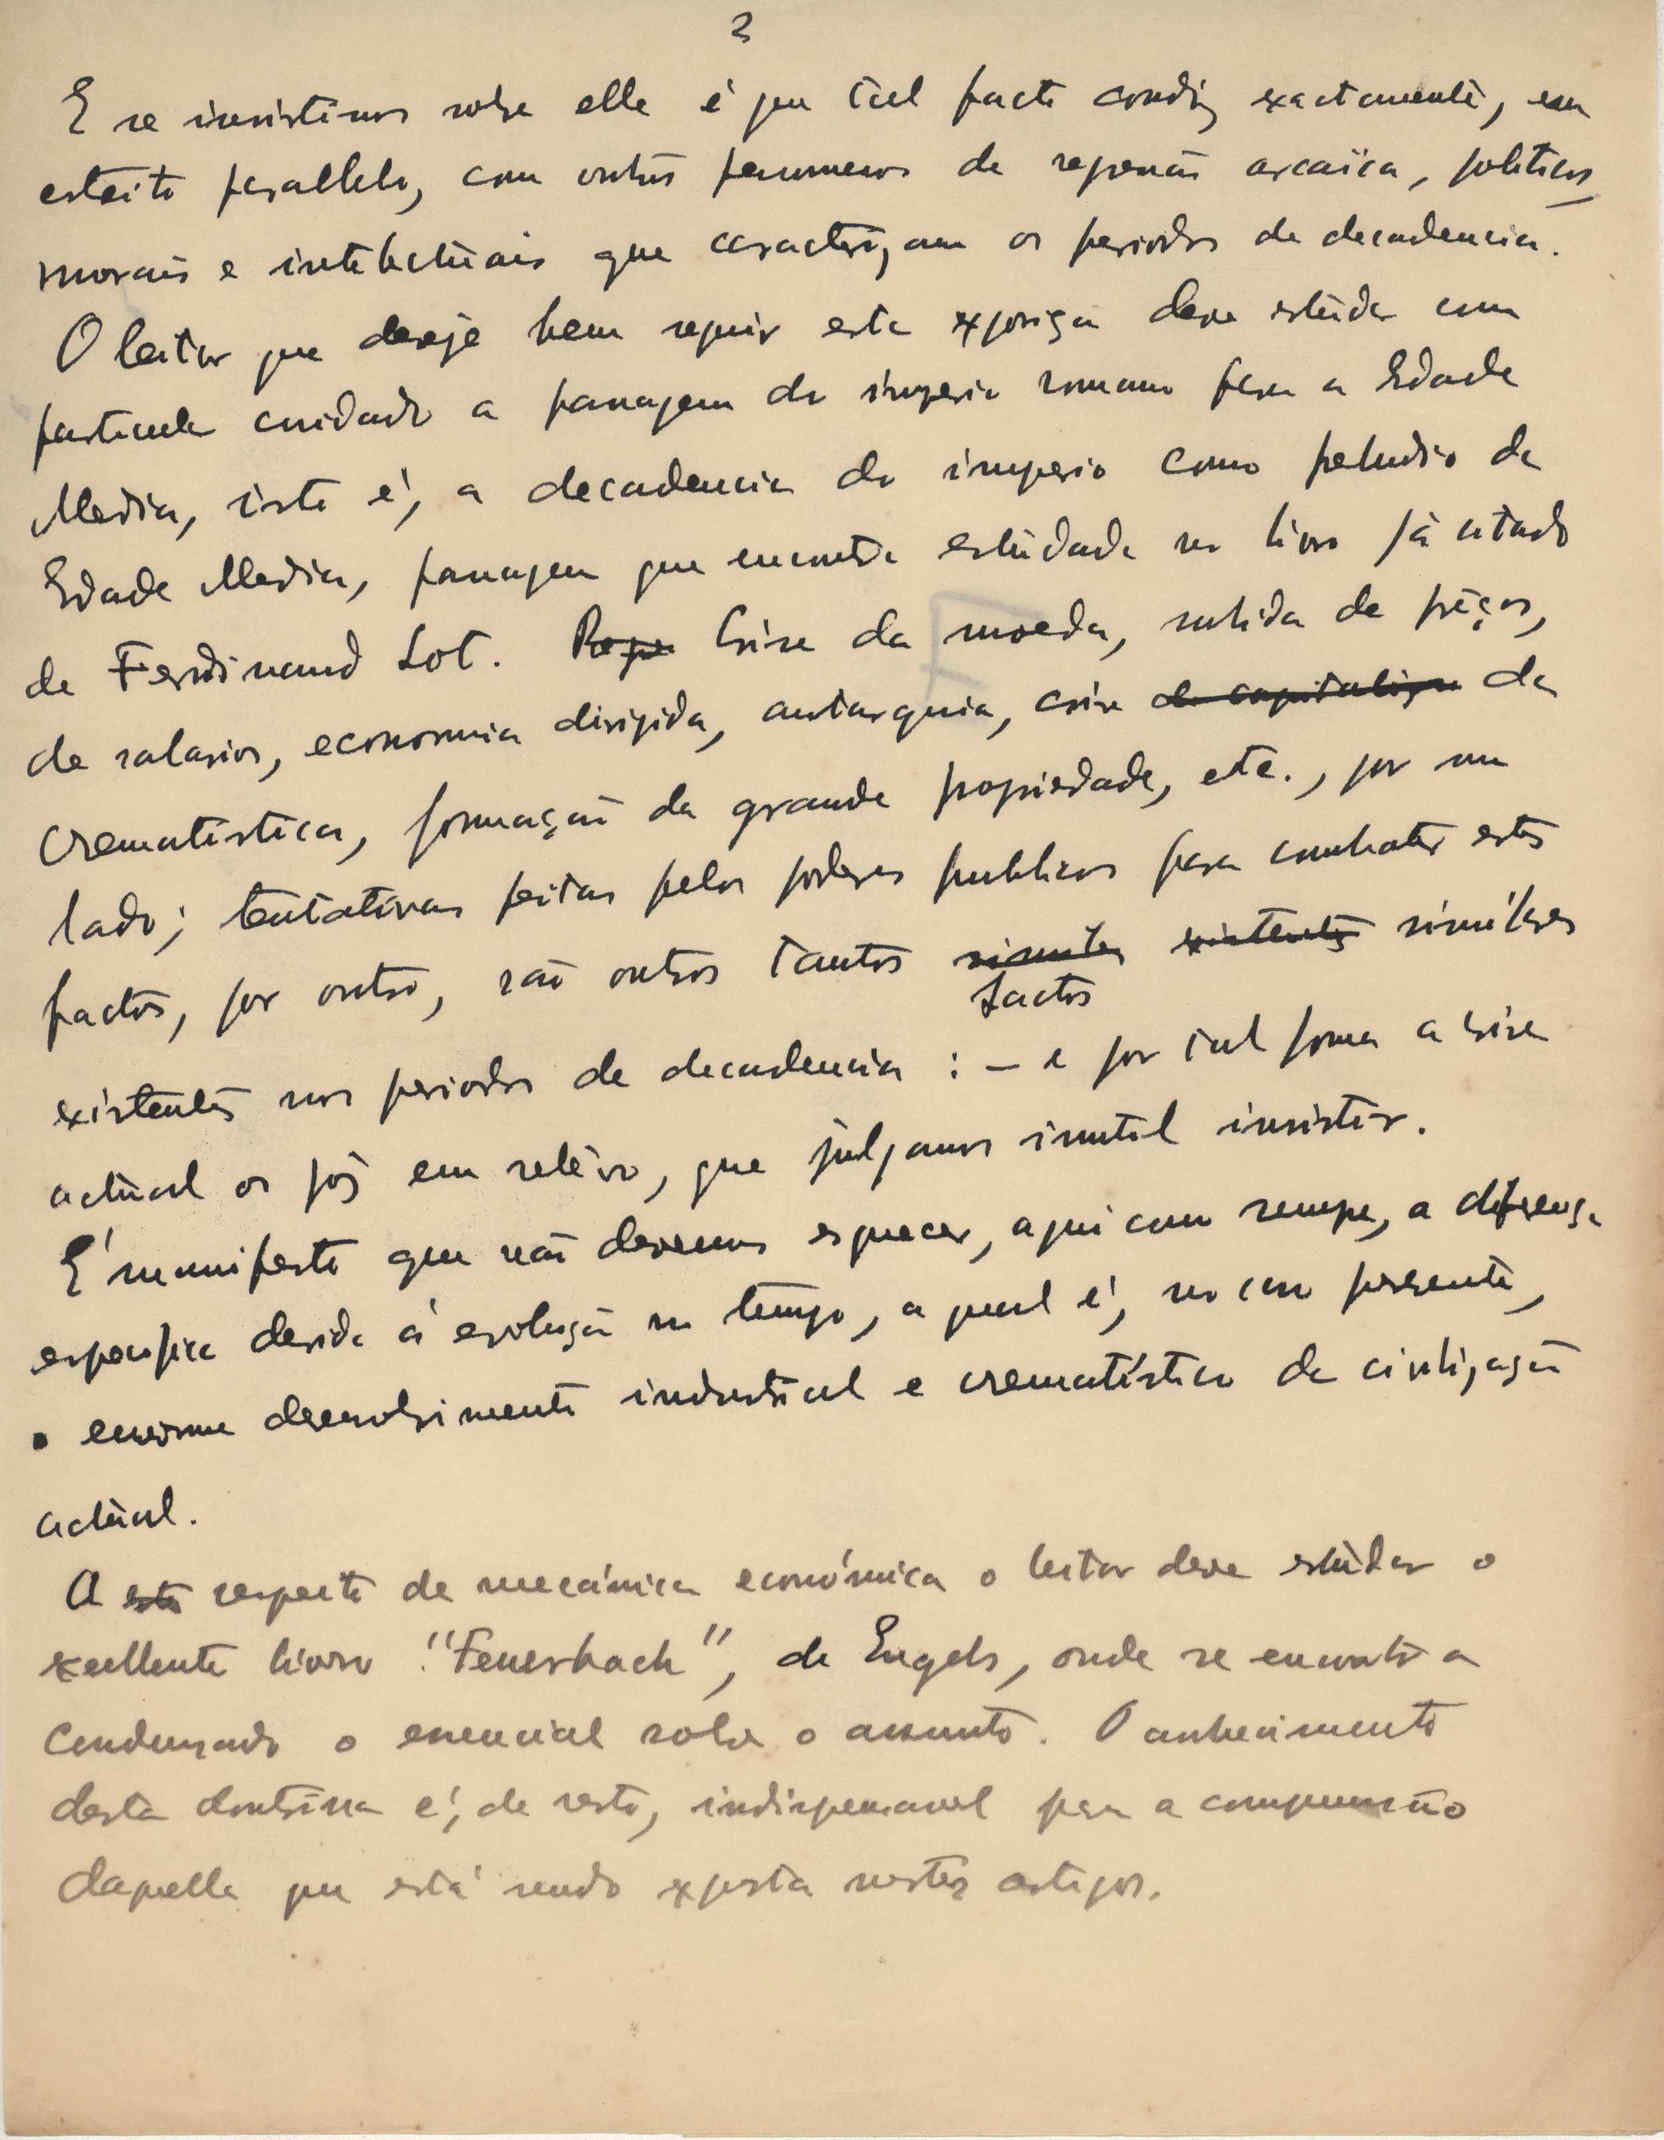 3
E se insistimos sobre elle é que tal facto condiz exactamente, em
estreito parallelo, com outros fenomenos de regressão arcaïca, politicos,
morais e intelectuais que caracterizam os periodos de decadencia.
O leitor que deseje bem seguir esta exposição deve estudar com
particular cuidado a passagem do imperio romano para a Edade
Media, isto é, a decadencia do imperio como preludio da
Edade Media, passagem que encontra estudada no livro já citado
de Ferdinand Lot. Crise da moeda, subida de preços,
de salarios, economia dirigida, autarquia, crise de capitalism da
crematistica, formação da grande propriedade, etc., por um
lado; tentativas feitas pelos poderes publicos para combater estes
factos, por outro, são outros tantos similes existentes símiles
factos
existentes nos periodos de decadencia : – e por tal forma a crise
actual os põe em relêvo, que julgamos inutil insistir.
É manifesto que não devemos esquecer, aqui como sempre, a diferença
especifica devida á evolução no tempo, a qual é, no caso presente,
o enorme desenvolvimento industrial e crematístico da civilização
actual.
A este respeito de mecánica económica o leitor deve estudar o
excellente livro "Feuerbach", de Engels, onde se encontra
condensado o essencial sobre o assunto. O conhecimento
desta doutrina é, de resto, indispensavel para a compreensão
daquella que está sendo exposta nestes artigos.